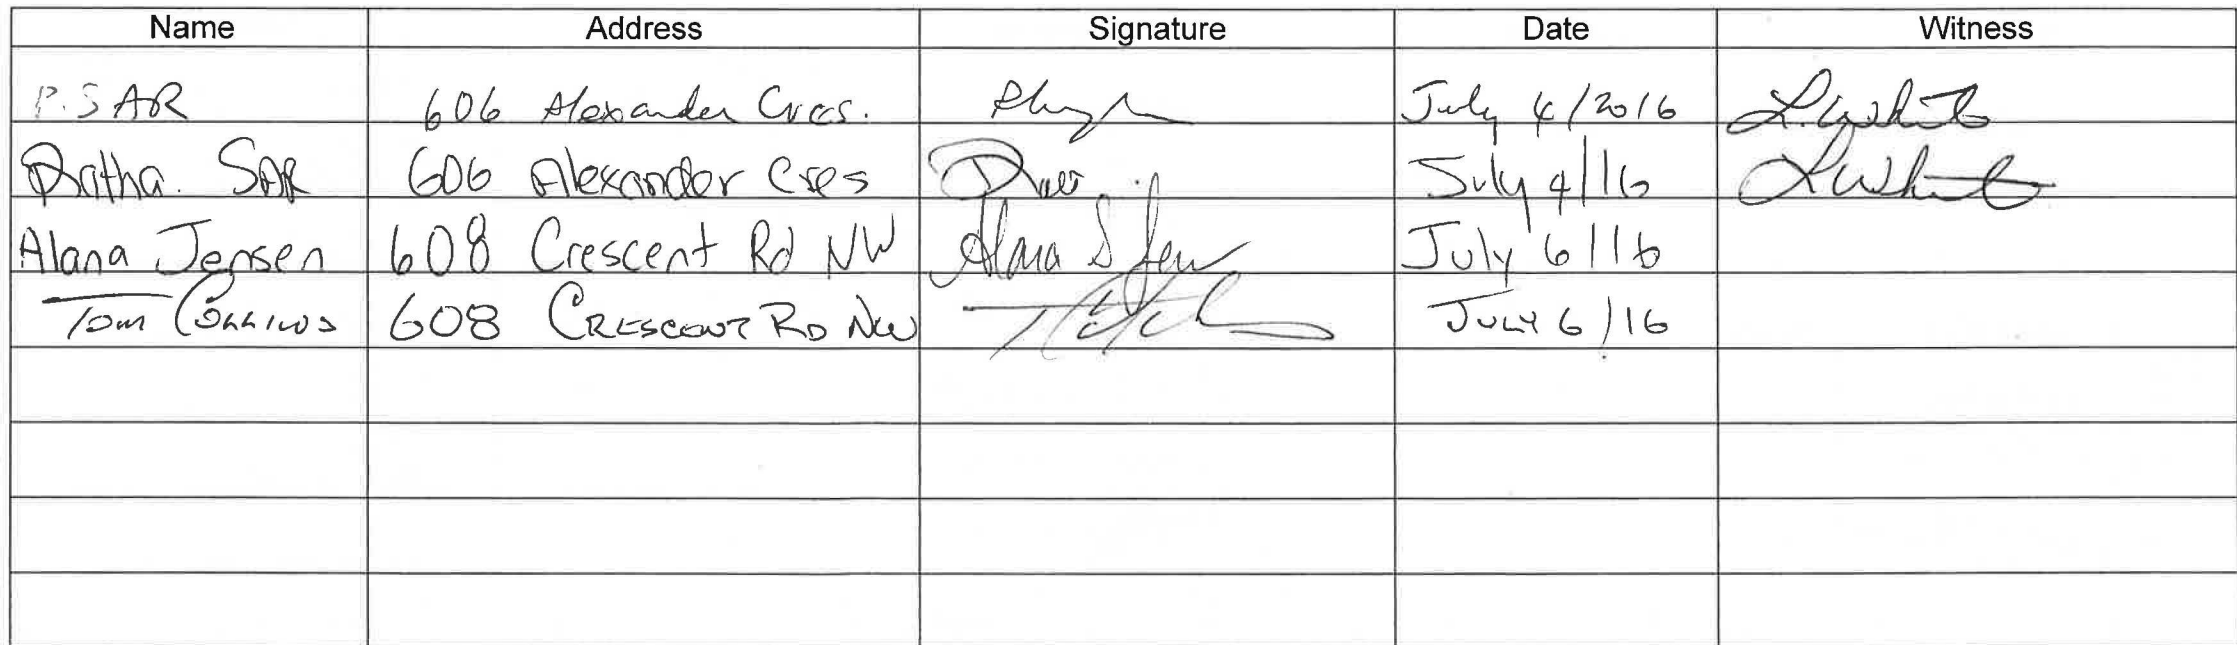 Name Address Signature Date Witness
P. SAR 606 Alexander Cres. July 4/2016 L. White
Ratha. SAR 606 Alexander Cres July 4/16 L White
Alana Jensen 608 Crescent Rd NW Alana S Jen July 6/16
Tom Collins 608 CRESCENT RD NW JULY 6/16